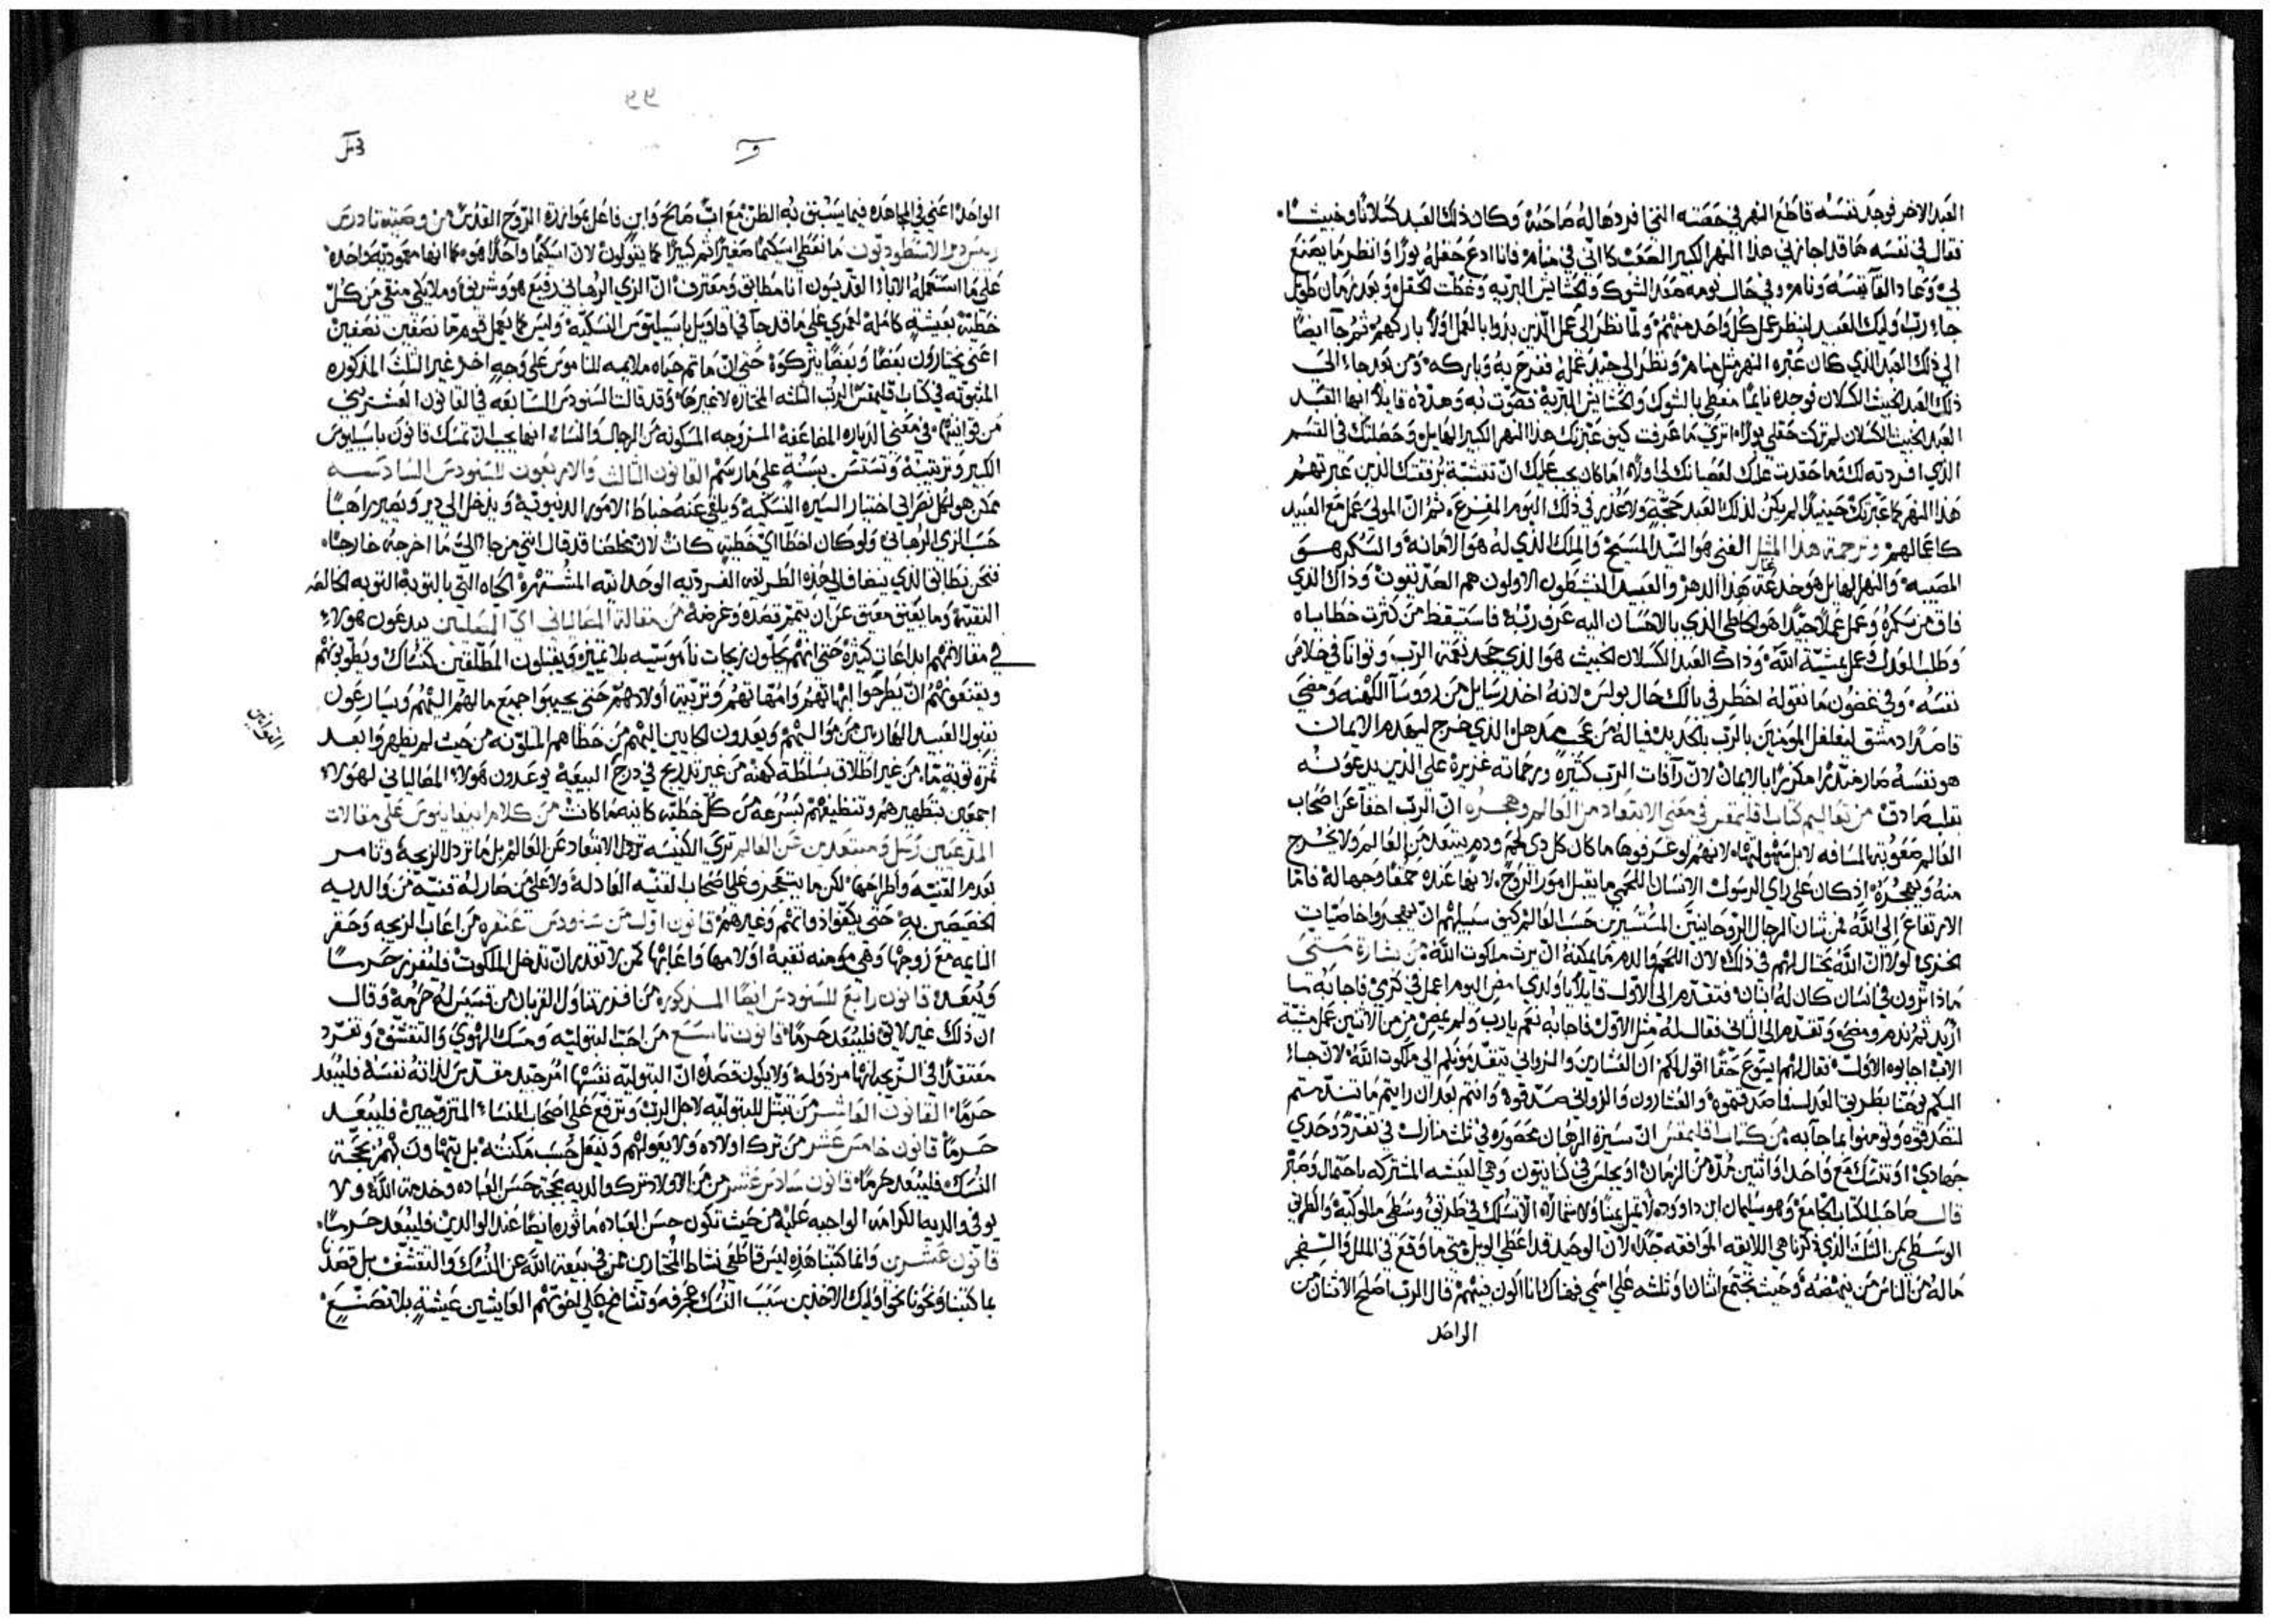 العبد الاخر فوجد نفسه قاطع النهر في حصته التي افردها له صاحبه وكان ذلك العبد كسلانًا وخبيثًا
فقال في نفسه ها قد اجازني هذا النهر الكبير الصعب كاني في منام فانا ادع حقله بورًا وانظر ما يصنع
بي وعاد القا نفسه ونام وفي حال نومه صعد الشوك والحشايش البريه وغطت الحقل وبعد زمان طويل
جاء رب اوليك العبيد لينظر عمل كل واحد منهم ولما نظر الى عمل الذين بدوا بالعمل اولًا باركهم ثم جآ ايضًا
الى ذلك العبد الذي كان عبره النهر مثل منام ونظر الى جيد عمله ففرح به وباركه ومن بعد جاء الى
ذلك العبد الخبيث الكسلان فوجده نايمًا مغطى بالشوك والحشايش البرية فصوت به وهدده قايلًا ايها العبد
العبد الخبيث الكسلان لم تركت حقلي بورًا اترى ما عرفت كيف عبرتك هذا النهر الكبير الهايل وحصلتك في القسم
الذي افردته لك وما حقدت عليك لعصيانك لي اولًا اما كان يجب عليك ان تتشبه برفقتك الذين عبرتهم
هذا النهر كما عبرتك حينيذ لم يكن لذلك العبد حجة ولا عذر في ذلك اليوم المفزع ثم ان المولى عمل مع العبيد
كاعمالهم وترجمة هذا المثل الغني هو السيد المسيح والملك الذي له هو الامانة والسكر هو
المصيبه والنهر الهايل هو خدعة هذا الدهر والعبيد المنشطون الاولون هم الصديقون وذاك الذي
فاق من سكره وعمل عملًا جيدًا هو الخاطي الذي بالاحسان اليه عرف ربه فاستيقظ من كثرت خطاياه
وطلب المدرك وعمل بمشيئة الله وذاك العبد الكسلان الخبيث هو الذي جحد نعمة الرب وتوانا في خلاص
نفسه وفي غضون ما نقوله اخطر في بالك حال بولس لانه اخذ رسايل من روسآ الكهنه ومضى
قاصدًا دمشق ليغلغل المومنين بالرب بالحديد فياله من عجب مذهل الذي خرج ليهدم الايمان
هو نفسه صار مبشرًا مكرزًا بالايمان لان رآفات الرب كثيرة ورحماته غزيرة على الذين يدعونه
بقلب صادق من تعاليم كتاب اقليمقس في معنى الابتعاد من العالم وهجره ان الرب اخفآ عن اصحاب
العالم صعوبة المسافه لا بل سهولتها لانهم لو عرفوها ما كان كل ذي لحم ودم يبتعد من العالم ولا يخرج
منه ويهجره اذ كان على راي الرسول الانسان اللحمي ما يقبل امور الروح لانها عنده حمقًا وجهالة فاما
الارتفاع الى الله فمن شان الرجال الروحانيين المستسيرين حسب العالم كيف سبيلهم ان يهجروا خاصيات
لولا ان الله يحتال لهم في ذلك لان اللحم والدم ما يمكنه ان يرث ملكوت الله من بشارة متى
ماذا ترون في انسان كان له ابنان فتقدم الى الاول قايلًا يا ولدي امض اليوم اعمل في كرمي فاجابه ما
اريد ثم ندم ومضى وتقدم الى الثاني فقال له مثل الاول فاجابه نعم يا رب ولم يمض فمن من الاثنين عمل مشيّة
الاب اجابوه الاول فقال لهم ايسوع حقًا اقول لكم ان العشارين والزواني يتقدمونكم الى ملكوت الله لان جاء
اليكم يوحنا بطريق العدل فما صدقتموه والعشارون والزواني صدقوه وانتم بعد ان رايتم ما تندمتم
لتصدقوه وتومنوا بما جآ به من كتاب اقليمقس ان سيرة الرهبان محصوره في ثلث منازل في تفرد وحدي
جهادي او تنسك مع واحد او اثنين مده من الزمان او يجلس في كنانيون وهي العيشه المشتركه باحتمال وصبر
قال صاحب الكتاب الجامع وهو سليمان ابن داوود لا تمل يمينًا ولا شمالًا الا تسلك في طريق وسطى ملوكيّة والطريق
الوسطى من الثلث الذي ذكرنا هي اللايقه الموافقه جدًا لان الوحيد قد اعطي الويل متى ما وقع في الملل والضجر
ما له من الناس من ينهضه وحيث تجتمع اثنان او ثلثه على اسمي فهناك انا اكون بينهم قال الرب اصلح الاثنان من
الواحد
٩٩
الواحد اعني في المجاهده فيما يسبق به الظن مع اب صالح وابن فاعل بموازرة الروح القدس من وصية تادرس
ريس دير الاسطوديون ما نعطي اسكيمًا صغيرًا ثم كبيرًا كما يقولون لان اسكيمًا واحدًا هو كما انها معمودية واحدة
على ما استعمله الاباء القديسون انا مطابق ومعترف ان الزي الرهباني رفيع هو وشريف وملايكي منقي من كل
خطية بعيشة كامله لعمري على ما قد جآ في اقاويل باسيليوس النسكية وليس كما يعمل قوم ما نصفين نصفين
اعني يختارون بعضًا وبعضًا يتركوه حتى ان ما تم حياه ملايمه للناموس على وجه اخر غير الثلث المذكوره
المثبوته في كتاب اقليمقس الرتب الثلثه المختاره لا غيرها وقد قالت السنودس السابعه في القانون العشرين
من قوانينها في معنى الدياره المضاعفة المزدوجه المسكونه من الرجال والنساء انها يجب ان تمسك قانون باسيليوس
الكبير وترتيبه وتستسن بسنة على ما رسم القانون الثالث والاربعون للسنودس السادسه
ممكن هو لكل نصراني اختيار السيره النسكية ويلقي عنه خباط الامور الدنيوية ويدخل الى دير ويصير راهبًا
حسب الزي الرهباني ولو كان اخطا اي خطية كانت لان مخلصنا قد قال انني من جا اليّ ما اخرجه خارجًا
النقية وما يعيق معيق عن ان يتمم قصده وغرضه من مقالة المصاليانى اي المصلين يدعون هولاء
في مقالاتهم ابداعات كثيرة حتى انهم يحلون زيجات ناموسيه بلا تمييز ويقبلون المطلقين كنساك ويطوبونهم
ويقنعونهم ان يطرحوا ابهاتهم وامهاتهم وتربية اولادهم حتى يجيبوا جميع مالهم اليهم ويسارعون
بقبول العبيد الهاربين من مواليهم ويعدون الجايين اليهم من خطاهم الملوثه من حيث لم يظهروا بعد
ثمرة توبة ما من غير اطلاق بسلطة كهنه من غير تدريج في درج البيعة يوعدون هولاء المصالياني لهولاء
اجمعين بتطهيرهم وتنظيفهم بسرعة من كل خطية كاينه ما كانت من كلام ابيفانيوس على مقالات
المدعيين رسل ومبتعدين عن العالم ترى الكنيسه ترذل الابتعاد عن العالم بل ما ترذل الزيجة وتامر
بعدم القنية واطراحها لكن ما يتفجر وعلى اصحاب القنيه العادلة ولا على من صار له قنية من والديه
الخصيصين به حتى يكفوا ذواتهم وغيرهم قانون اول من سنودس غنغره من اعاب الزيجه وحقر
النايمه مع زوجها وهي مومنه نقية او لامها واعابها كمن لا تقدر ان تدخل الملكوت فليفرز حرمًا
ويبعد قانون رابع للسنودس ايضًا المذكوره من افرز متناول القربان من قسيس له حرمة وقال
ان ذلك غير لايق فليبعد حرمًا قانون تاسع من احب البتولية ومسك الهوي والتقشف وتفرد
معتقدًا في الزيجه انها مرذولة ولا يكون قصده ان البتولية نفسها امر جيد مقدس لذاته نفسه فليبعد
حرمًا القانون العاشر من تبتل للبتوليه لاجل الرب وترفع على اصحاب النساء المتزوجين فليبعد
حرمًا قانون خامس عشر من ترك اولاده ولا يعولهم ويفعل حسب مكنته بل يتهاون بهم بحجة
النسك فليبعد حرمًا قانون سادس عشر من من الاولاد ترك والديه بحجة حسن العباده وخدمة الله ولا
يوفي والديه الكرامه الواجبه عليه من حيث تكون حسن العباده ماثوره ايضًا عند الوالدين فليبعد حرمًا
قانون عشرين وانما كتبنا هذه ليس قاطعي نشاط المختارين ممن في بيعة الله عن النسك والتقشف بل قصدنا
بما كتبنا ونحونا نحو اوليك الاخذين سبب النسك عجرفه وتشامخ على اخوتهم العايشين عيشة بلا تصنع
القوانين